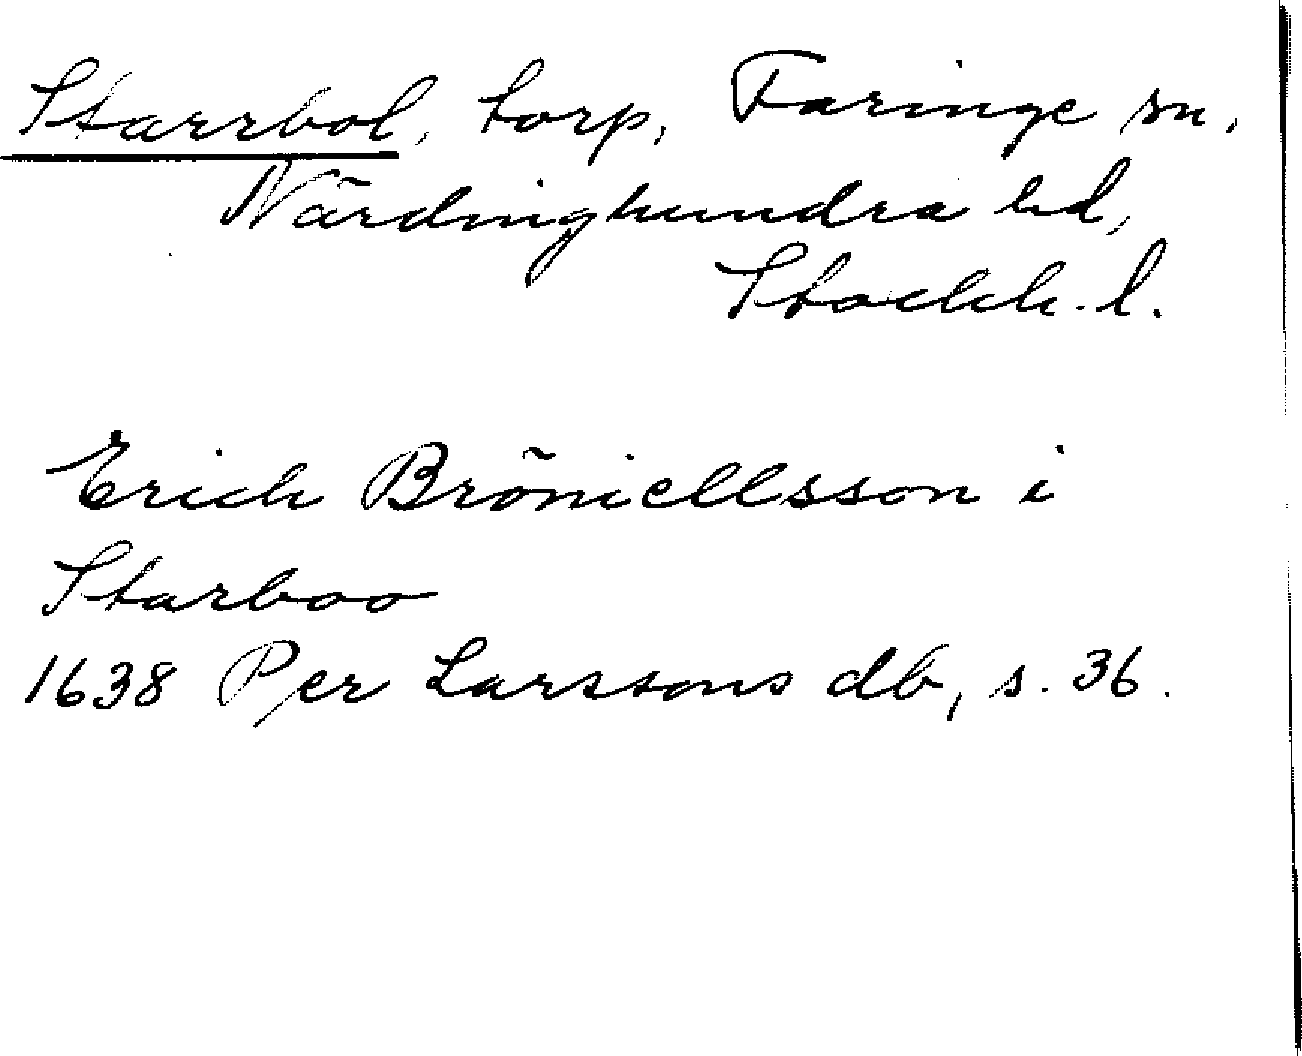 Starrbol, torp, Faringe sn,
Närdinghundra hd,
Stockh. l.
Erich Bröniellsson i
Starboo
1638 Per Larssons db, s. 36.